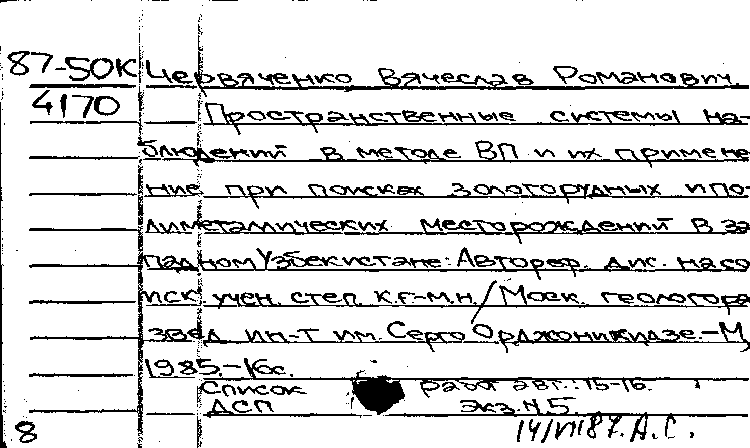 87-50К Червяченко Вячеслав Романович.
4170 Пространственные системы на-
блюдений в методе ВП и их примене
ние при поисках золоторудных и по-
лиметаллических месторождений в За
падном Узбекистане: Автореф. дис. на со
иск. учен. степ. к.г-м.н. / Моск. геологора
звед. ин-т им. Серго Орджоникидзе. - М.,
1985. - 16с.
Список работ авт.: 15-16.
ДСП экз. N.5.
8 14/VII 87. А.С.